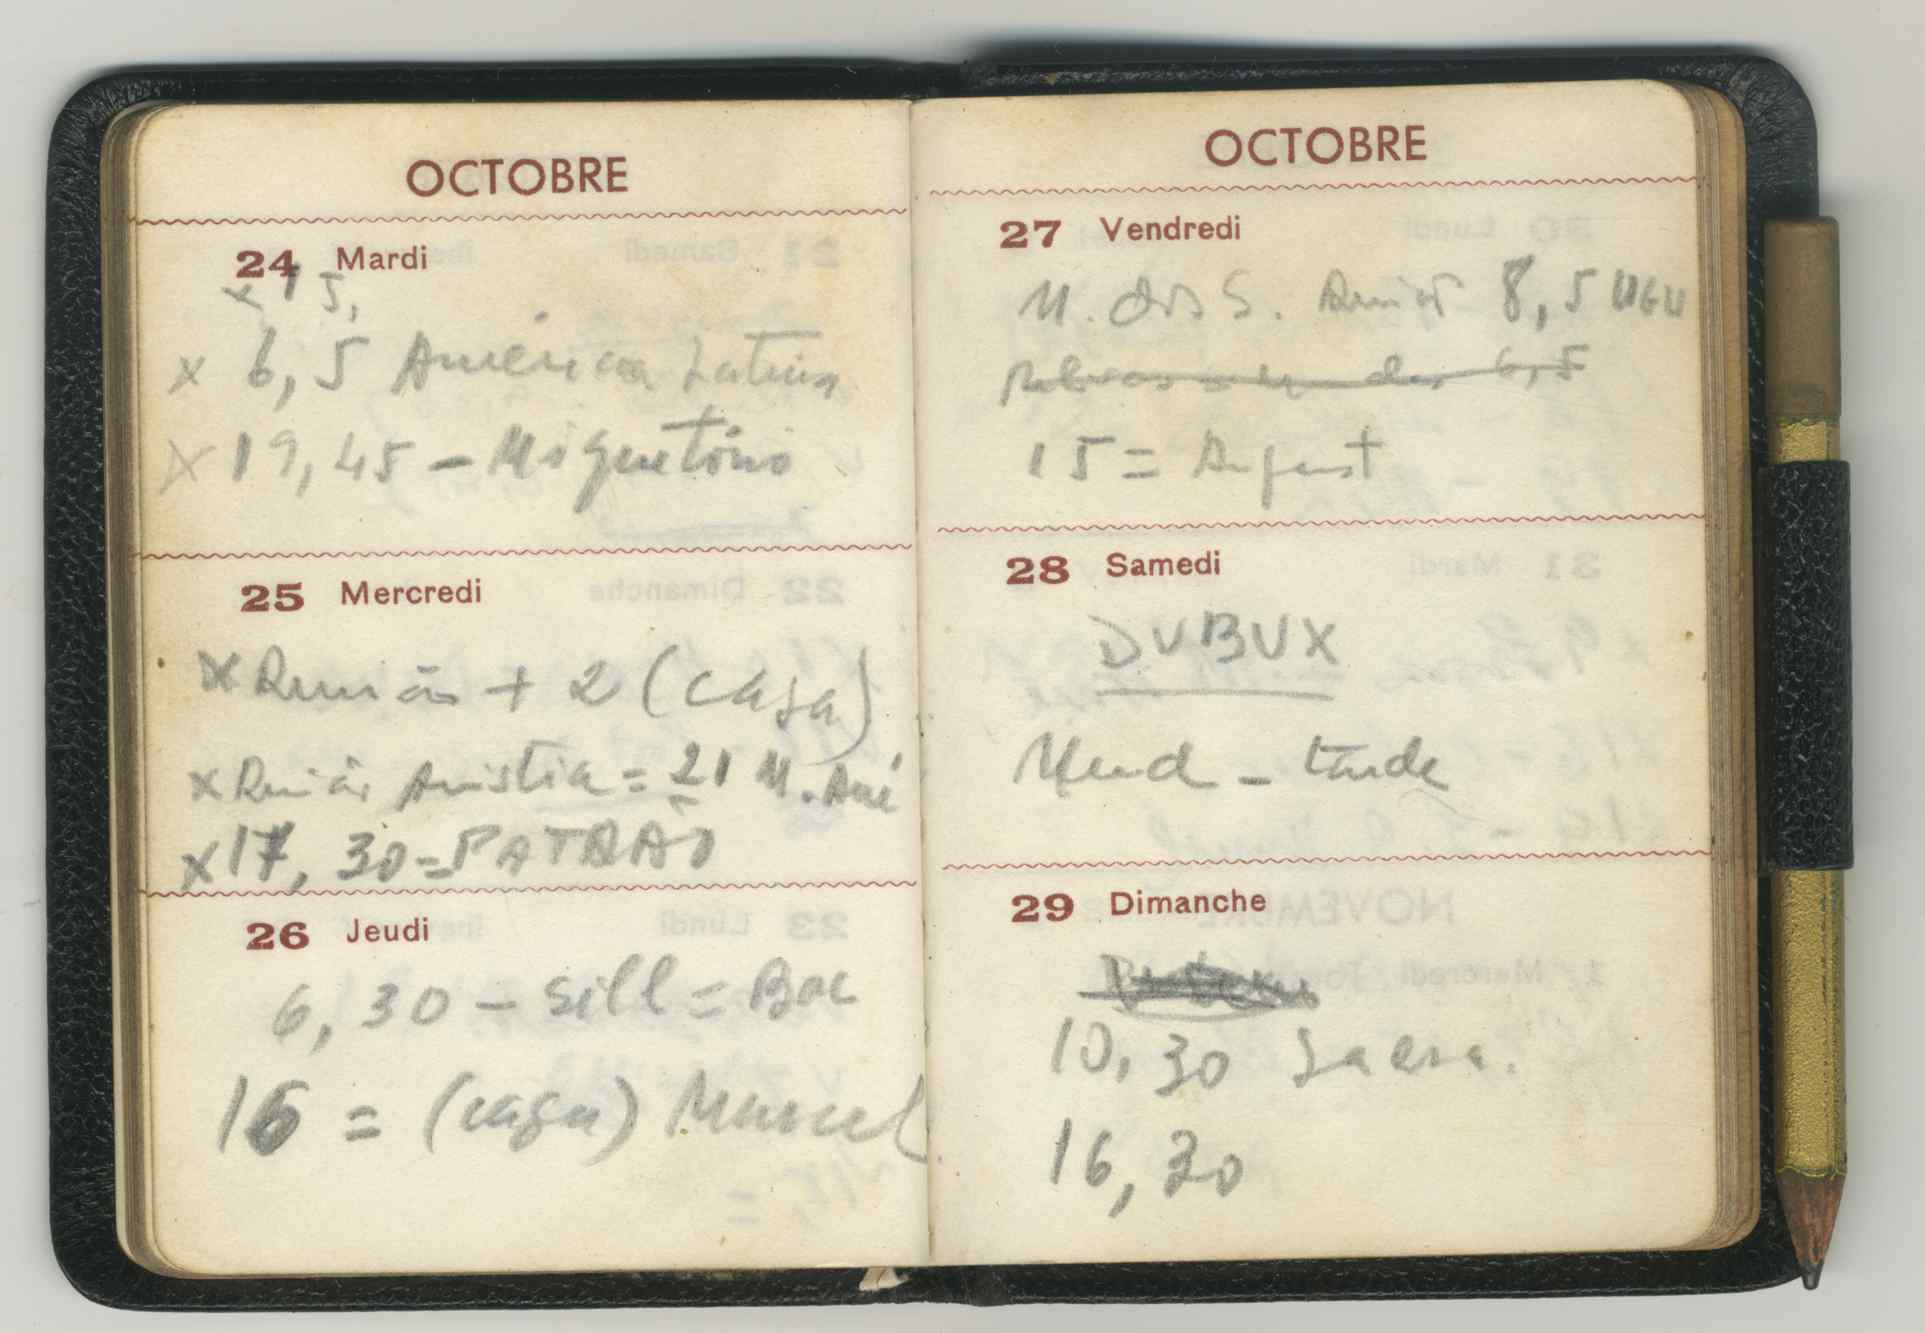 OCTOBRE
24 Mardi
x 15,
x 6,5 América Latina
x 19,45 – Miguel
25 Mercredi
x Reunião + 2 (casa)
x Reunião Amistia = 21 M.
x 17,30 = PATRÃO
26 Jeudi
6,30 – Sill = Bac
16 = (casa) Marcel
OCTOBRE
27 Vendredi
M. dos S. 8,5
6,5
15 = August
28 Samedi
DUBUX
Mend – tarde
29 Dimanche
10,30
16,30